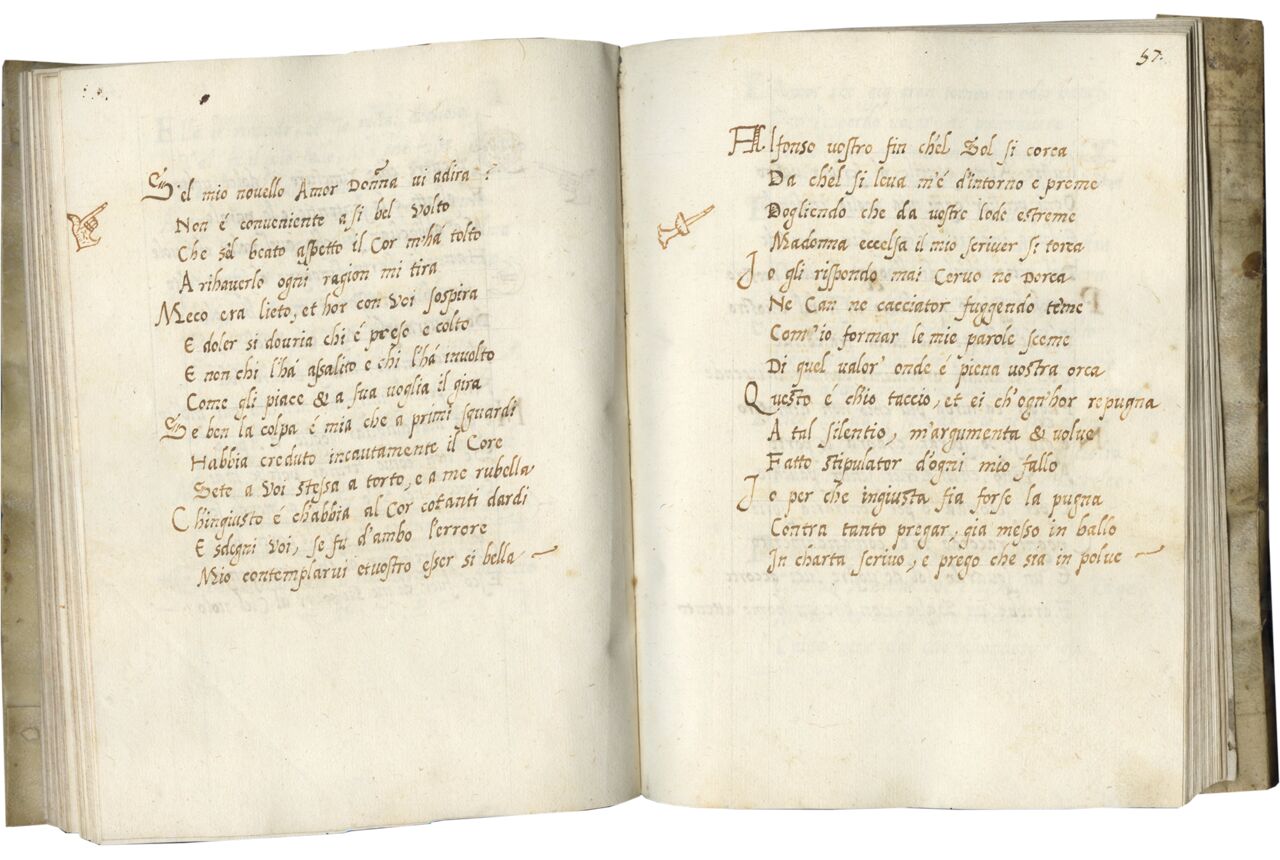 S'el mio novello Amor Donna vi adira
Non é conveniente a si bel Volto
Che s'al beato aspetto il Cor m'há tolto
A rihaverlo ogni ragion mi tira
Meco era lieto, et hor con Voi sospira
E doler si douria chi é preso e colto
E non chi l'há assalito e chi l'há involto
Come gli piace & a sua voglia il gira
Se ben la colpa é mia che a primi sguardi
Habbia creduto incautamente il Core
Sete a Voi stessa a torto, e a me rubella
Ch'ingiusto é c'habbia al Cor cotanti dardi
E sdegni Voi, se fú d'ambo l'errore
Mio contemplarvi et vostro esser si bella
57.
Alfonso vostro fin ch'el Sol si corca
Da ch'el si leva m'é d'intorno e preme
Dogliendo che da vostre lode estreme
Madonna eccelsa il mio scriver si torca
Io gli rispondo mai Cervo ne Dorca
Ne Can ne cacciator fuggendo teme
Com'io formar le mie parole sceme
Di quel valor' onde é piena vostra orca
Questo é ch'io taccio, et ei ch'ogn'hor repugna
A tal silentio, m'argumenta & volve
Fatto stipulator d'ogni mio fallo
Io per che ingiusta fia forse la pugna
Contra tanto pregar, gia messo in ballo
In charta scrivo, e prego che sia in polve